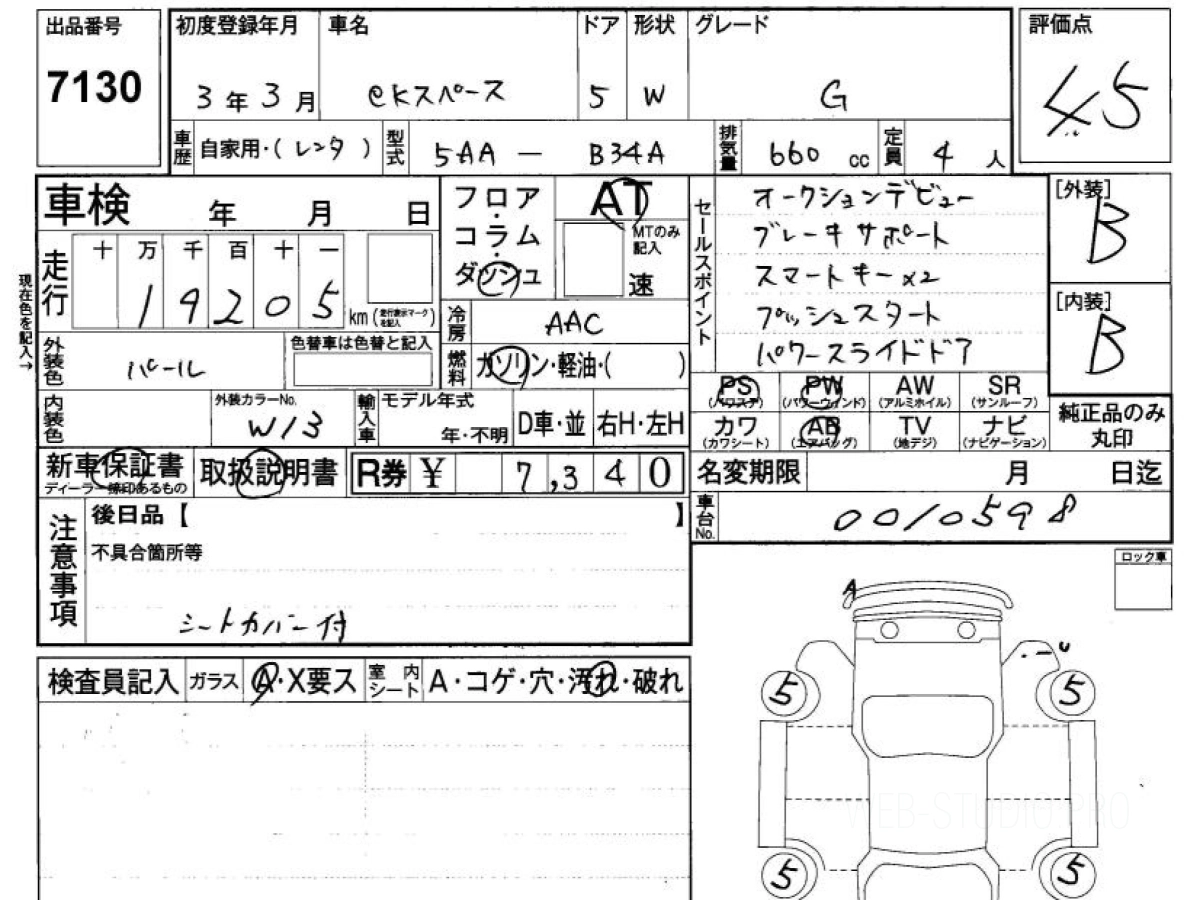 出品番号
7130
初度登録年月
3年3月
車名
eKスペース
ドア
5
形状
W
グレード
G
評価点
4.5
車歴
自家用・(レンタ)
型式
5AA - B34A
排気量
660 cc
定員
4人
車検 年 月 日
フロア・コラム・ダッシュ
AT
MTのみ記入
速
セールスポイント
オークションデビュー
ブレーキサポート
スマートキー×2
プッシュスタート
パワースライドドア
[外装]
B
[内装]
B
現在色を記入→
走行
十 万 千 百 十 一
1 9 2 0 5
km(走行表示マークを記入)
冷房
AAC
外装色
パール
色替車は色替と記入
燃料
ガソリン・軽油・( )
PS
(パワステ)
PW
(パワーウィンド)
AW
(アルミホイル)
SR
(サンルーフ)
カワ
(カワシート)
AB
(エアバッグ)
TV
(地デジ)
ナビ
(ナビゲーション)
純正品のみ丸印
内装色
外装カラーNo.
W13
輸入車
モデル年式
年・不明
D車・並
右H・左H
新車保証書
ディーラー捺印あるもの
取扱説明書
R券 ¥ 7,340
名変期限 月 日迄
車台No.
0010598
注意事項
後日品【 】
不具合箇所等
シートカバー付
ロック車
検査員記入
ガラス
A・X要ス
室内シート
A・コゲ・穴・汚れ・破れ
A
U
5
5
5
5
WEB-STUDIO.PRO